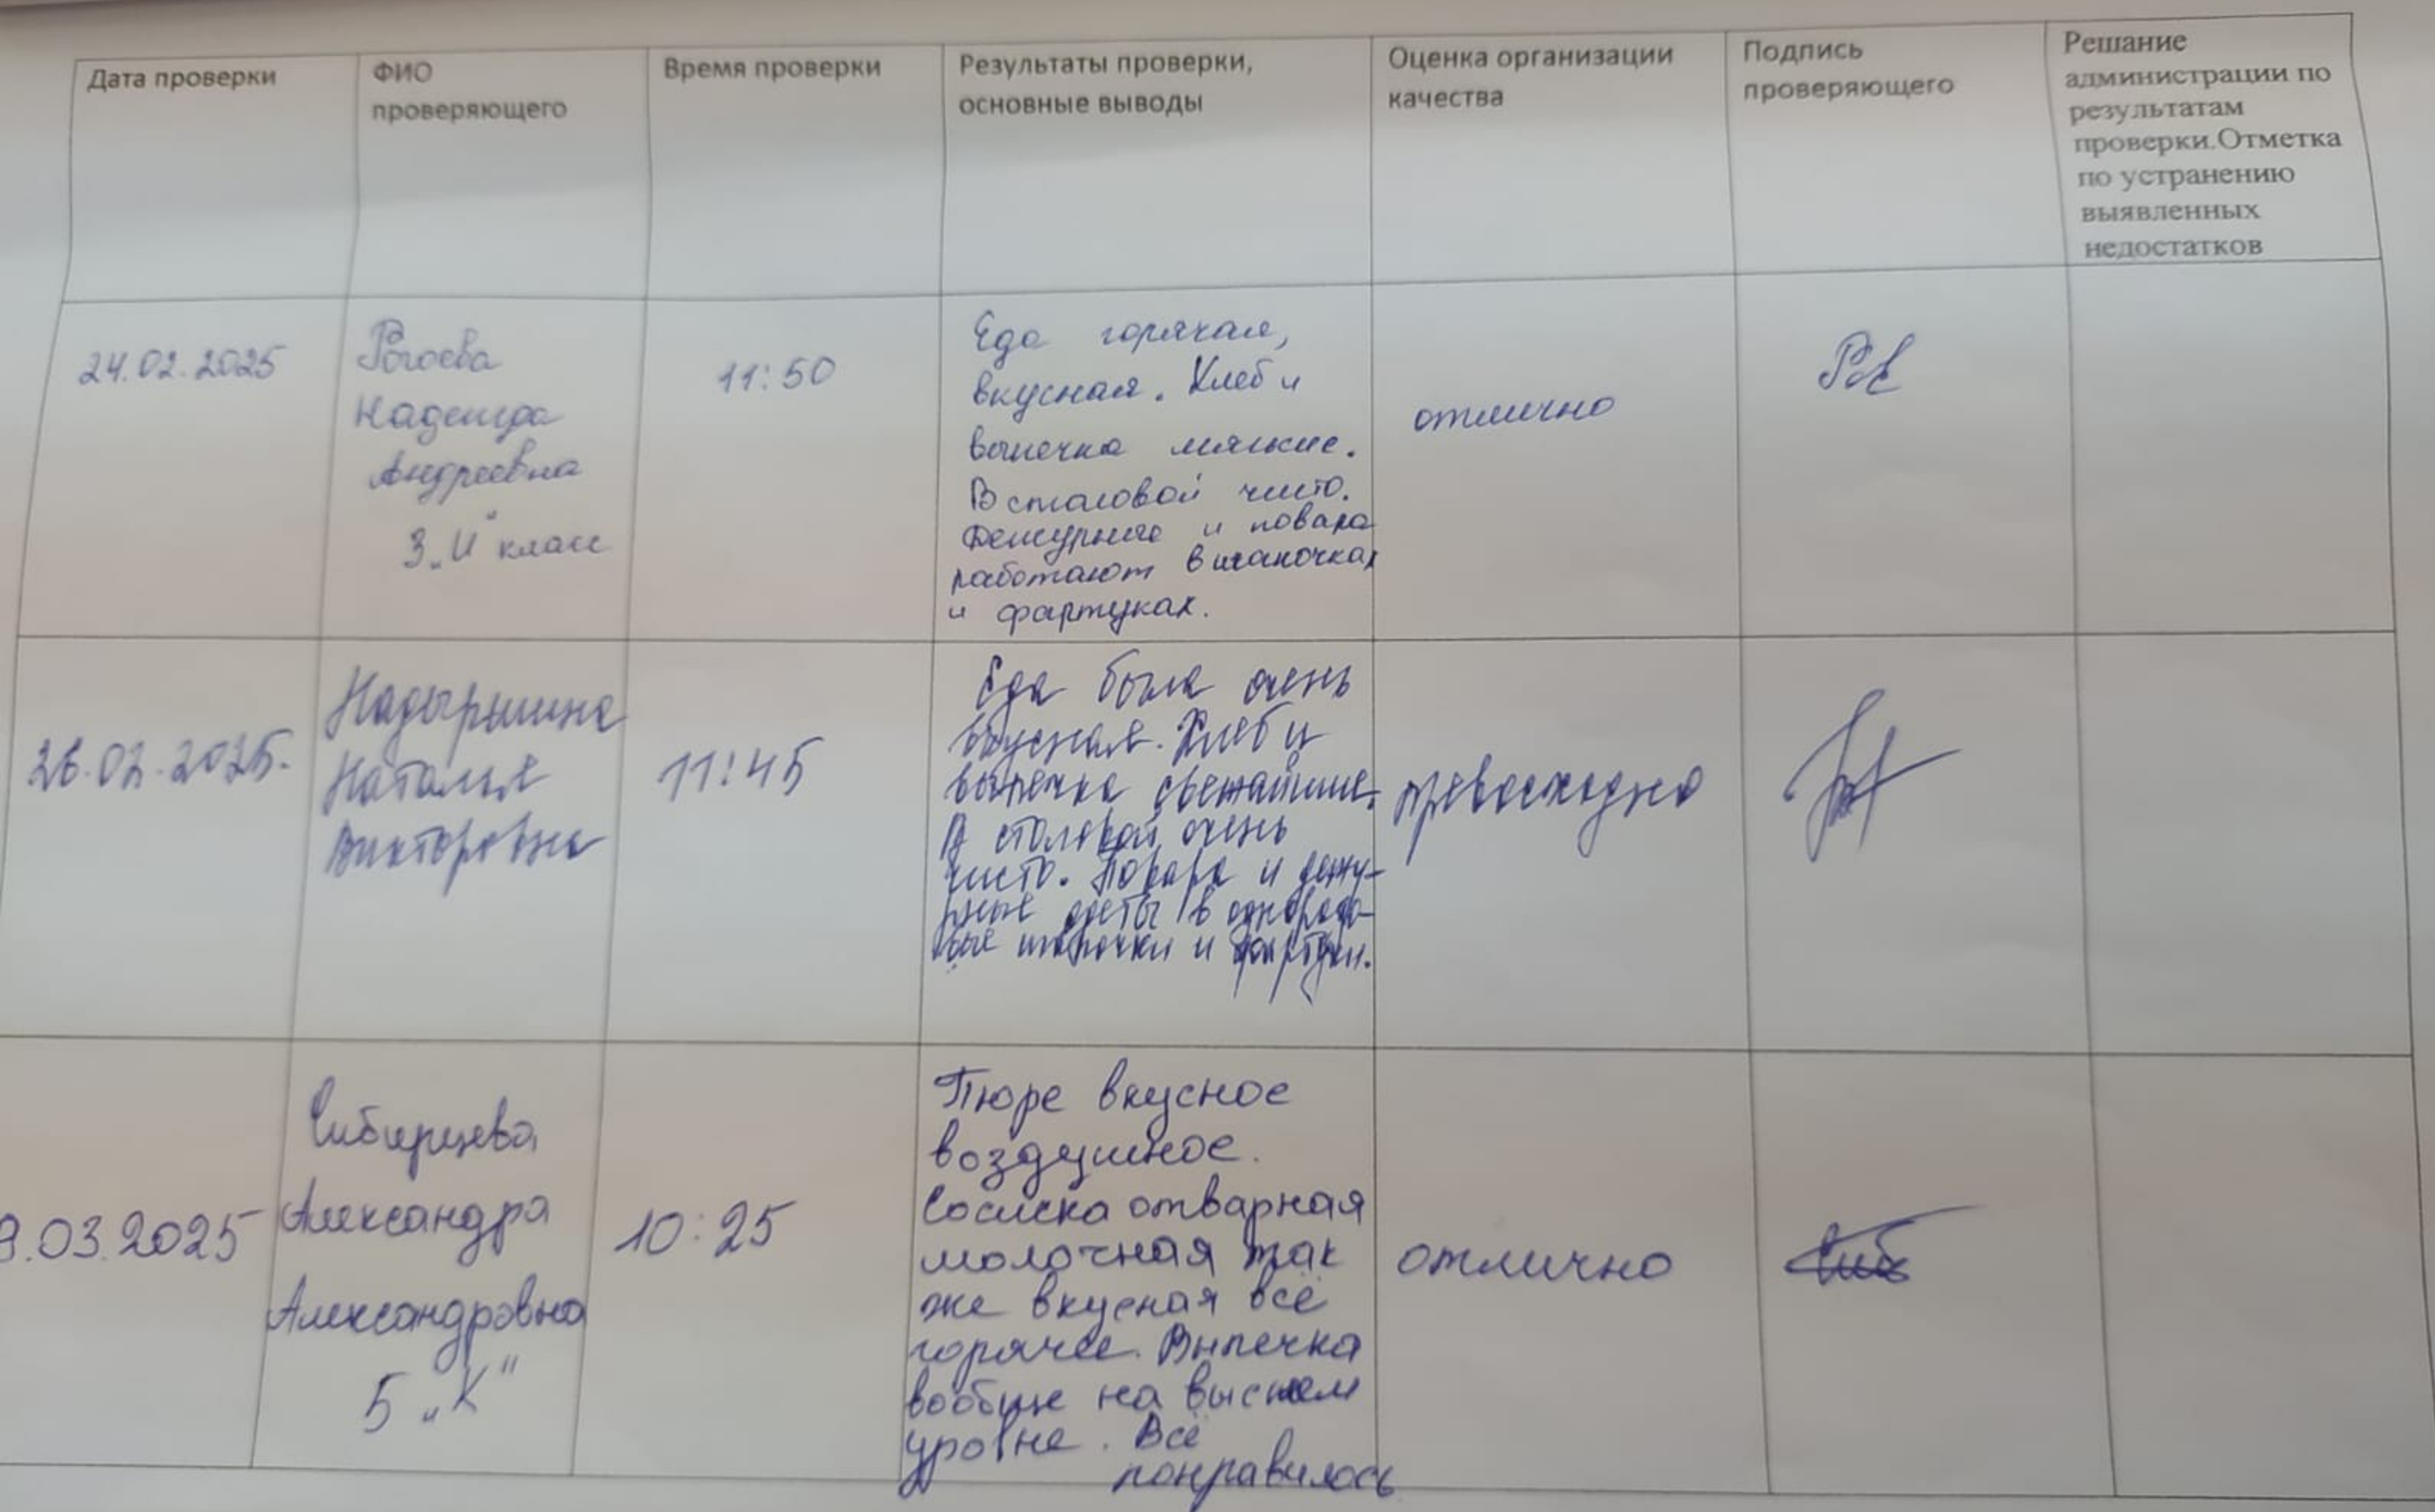 Дата проверки
ФИО
проверяющего
Время проверки
Результаты проверки,
основные выводы
Оценка организации
качества
Подпись
проверяющего
Решание
администрации по
результатам
проверки.Отметка
по устранению
выявленных
недостатков
24.02.2025
Надежда
Андреевна
3 „И" класс
11:50
Еда горячая,
вкусная. Хлеб и
выпечка мягкие.
В столовой чисто.
Дежурные и повара
работают в шапочках
и фартуках.
отлично
26.02.2025.
Надыршина
Наталья
Викторовна
11:45
Еда была очень
вкусная. Хлеб и
выпечка свежайшие.
В столовой очень
чисто. Повара и дежу-
рные одеты в одноразо-
вые шапочки и фартуки.
превосходно
.03.2025
Сибирцева
Александра
Александровна
5 „К"
10:25
Пюре вкусное
воздушное.
Сосиска отварная
молочная так
же вкусная всё
горячее. Выпечка
вообще на высшем
уровне. Всё
понравилось
отлично